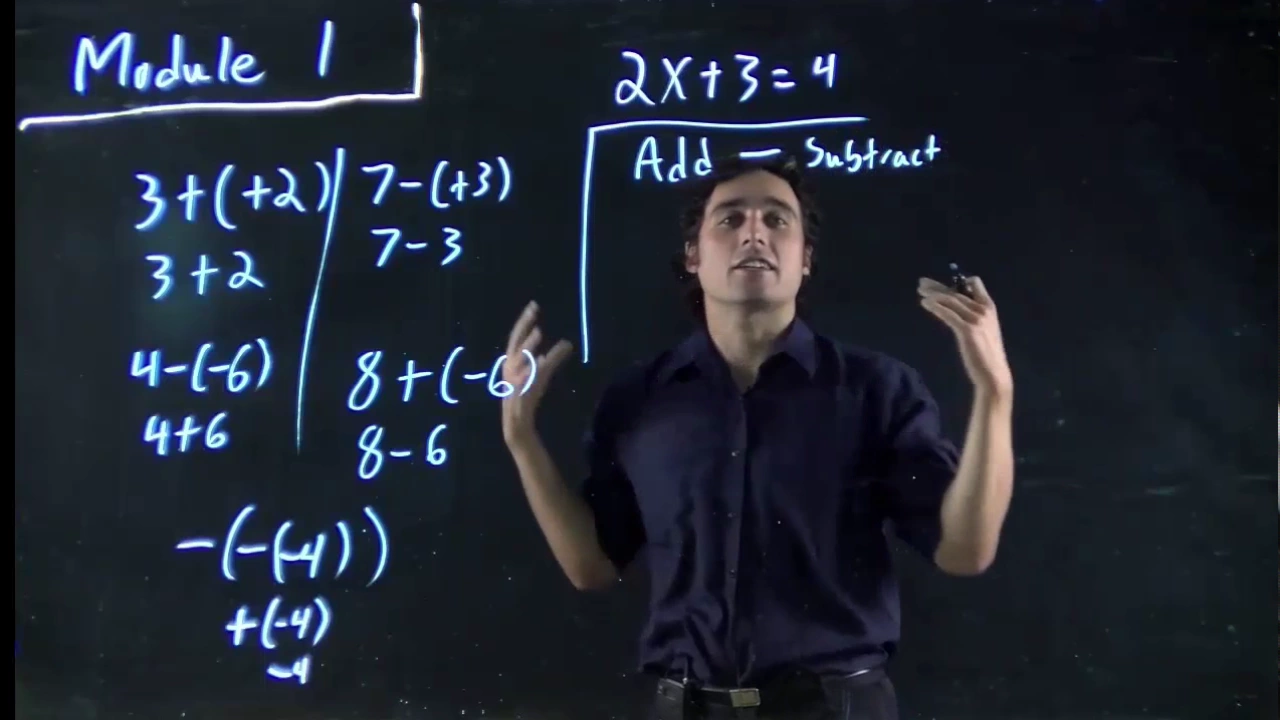 Module 1
3+(+2)
3+2
7-(+3)
7-3
4-(-6)
4+6
8+(-6)
8-6
-(-(-4))
+(-4)
-4
2x+3=4
Add — Subtract